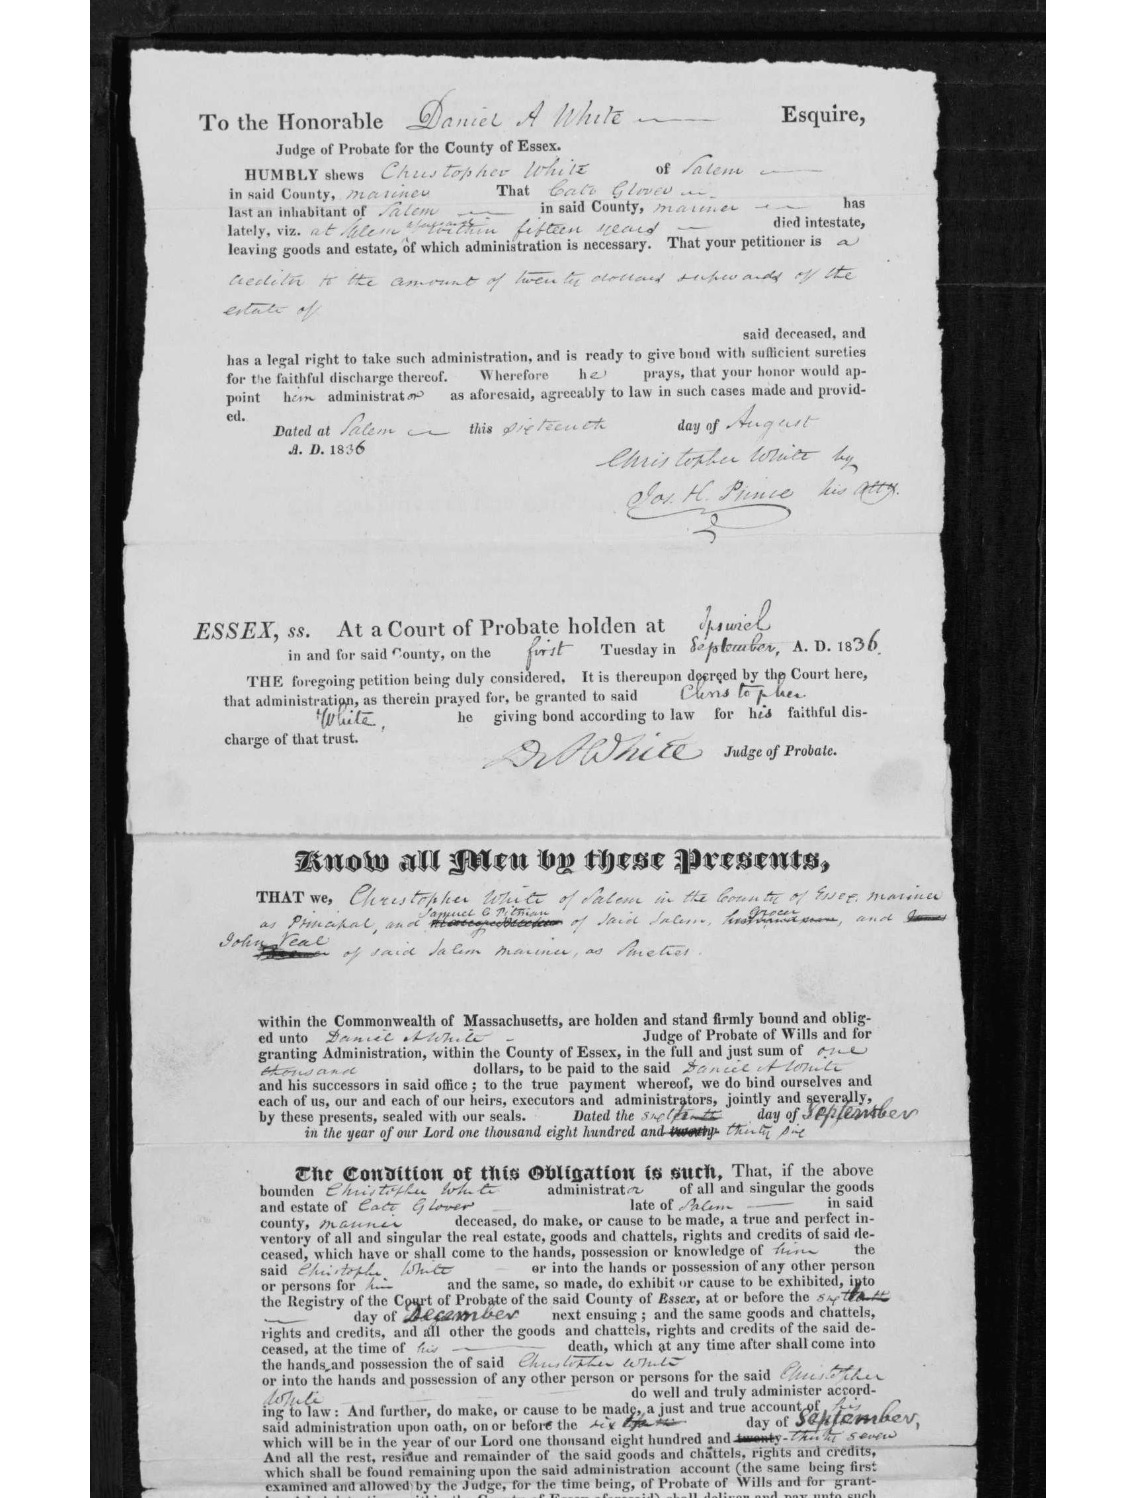 To the Honorable Daniel A White Esquire,
Judge of Probate for the County of Essex.
HUMBLY shews Christopher White of Salem
in said County, mariner That Cato Glover
last an inhabitant of Salem in said County, mariner has
lately, viz. at Salem aforesaid within fifteen years died intestate,
leaving goods and estate, of which administration is necessary. That your petitioner is a
creditor to the amount of twenty dollars & upwards of the
estate of
said deceased, and
has a legal right to take such administration, and is ready to give bond with sufficient sureties
for the faithful discharge thereof. Wherefore he prays, that your honor would ap-
point him administrator as aforesaid, agreeably to law in such cases made and provid-
ed.
Dated at Salem this sixteenth day of August
A. D. 1836
Christopher White by
Jos. H. Prince his atty.
ESSEX, ss. At a Court of Probate holden at Ipswich
in and for said County, on the first Tuesday in September, A. D. 1836.
THE foregoing petition being duly considered, It is thereupon decreed by the Court here,
that administration, as therein prayed for, be granted to said Christopher
White, he giving bond according to law for his faithful dis-
charge of that trust.
D A White Judge of Probate.
Know all Men by these Presents,
THAT we, Christopher White of Salem in the County of Essex, mariner
as Principal, and Samuel C Pitman of said Salem, Grocer, and
John Neal of said Salem mariner, as Sureties.
within the Commonwealth of Massachusetts, are holden and stand firmly bound and oblig-
ed unto Daniel A White Judge of Probate of Wills and for
granting Administration, within the County of Essex, in the full and just sum of one
thousand dollars, to be paid to the said Daniel A White
and his successors in said office; to the true payment whereof, we do bind ourselves and
each of us, our and each of our heirs, executors and administrators, jointly and severally,
by these presents, sealed with our seals. Dated the sixth day of September
in the year of our Lord one thousand eight hundred and twenty thirty six
The Condition of this Obligation is such, That, if the above
bounden Christopher White administrator of all and singular the goods
and estate of Cato Glover late of Salem in said
county, mariner deceased, do make, or cause to be made, a true and perfect in-
ventory of all and singular the real estate, goods and chattels, rights and credits of said de-
ceased, which have or shall come to the hands, possession or knowledge of him the
said Christopher White or into the hands or possession of any other person
or persons for him and the same, so made, do exhibit or cause to be exhibited, into
the Registry of the Court of Probate of the said County of Essex, at or before the sixth
day of December next ensuing; and the same goods and chattels,
rights and credits, and all other the goods and chattels, rights and credits of the said de-
ceased, at the time of his death, which at any time after shall come into
the hands and possession the of said Christopher White
or into the hands and possession of any other person or persons for the said Christopher
White do well and truly administer accord-
ing to law: And further, do make, or cause to be made, a just and true account of his
said administration upon oath, on or before the six day of September,
which will be in the year of our Lord one thousand eight hundred and twenty-thirty seven
And all the rest, residue and remainder of the said goods and chattels, rights and credits,
which shall be found remaining upon the said administration account (the same being first
examined and allowed by the Judge, for the time being, of Probate of Wills and for grant-